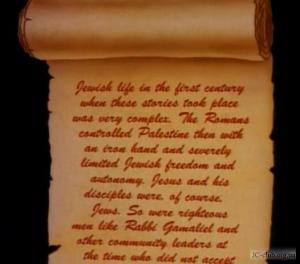 Jewish life in the first century
when these stories took place
was very complex. The Romans
controlled Palestine then with
an iron hand and severely
limited Jewish freedom and
autonomy. Jesus and his
disciples were, of course,
Jews. So were righteous
men like Rabbi Gamaliel and
other community leaders at
the time who did not accept